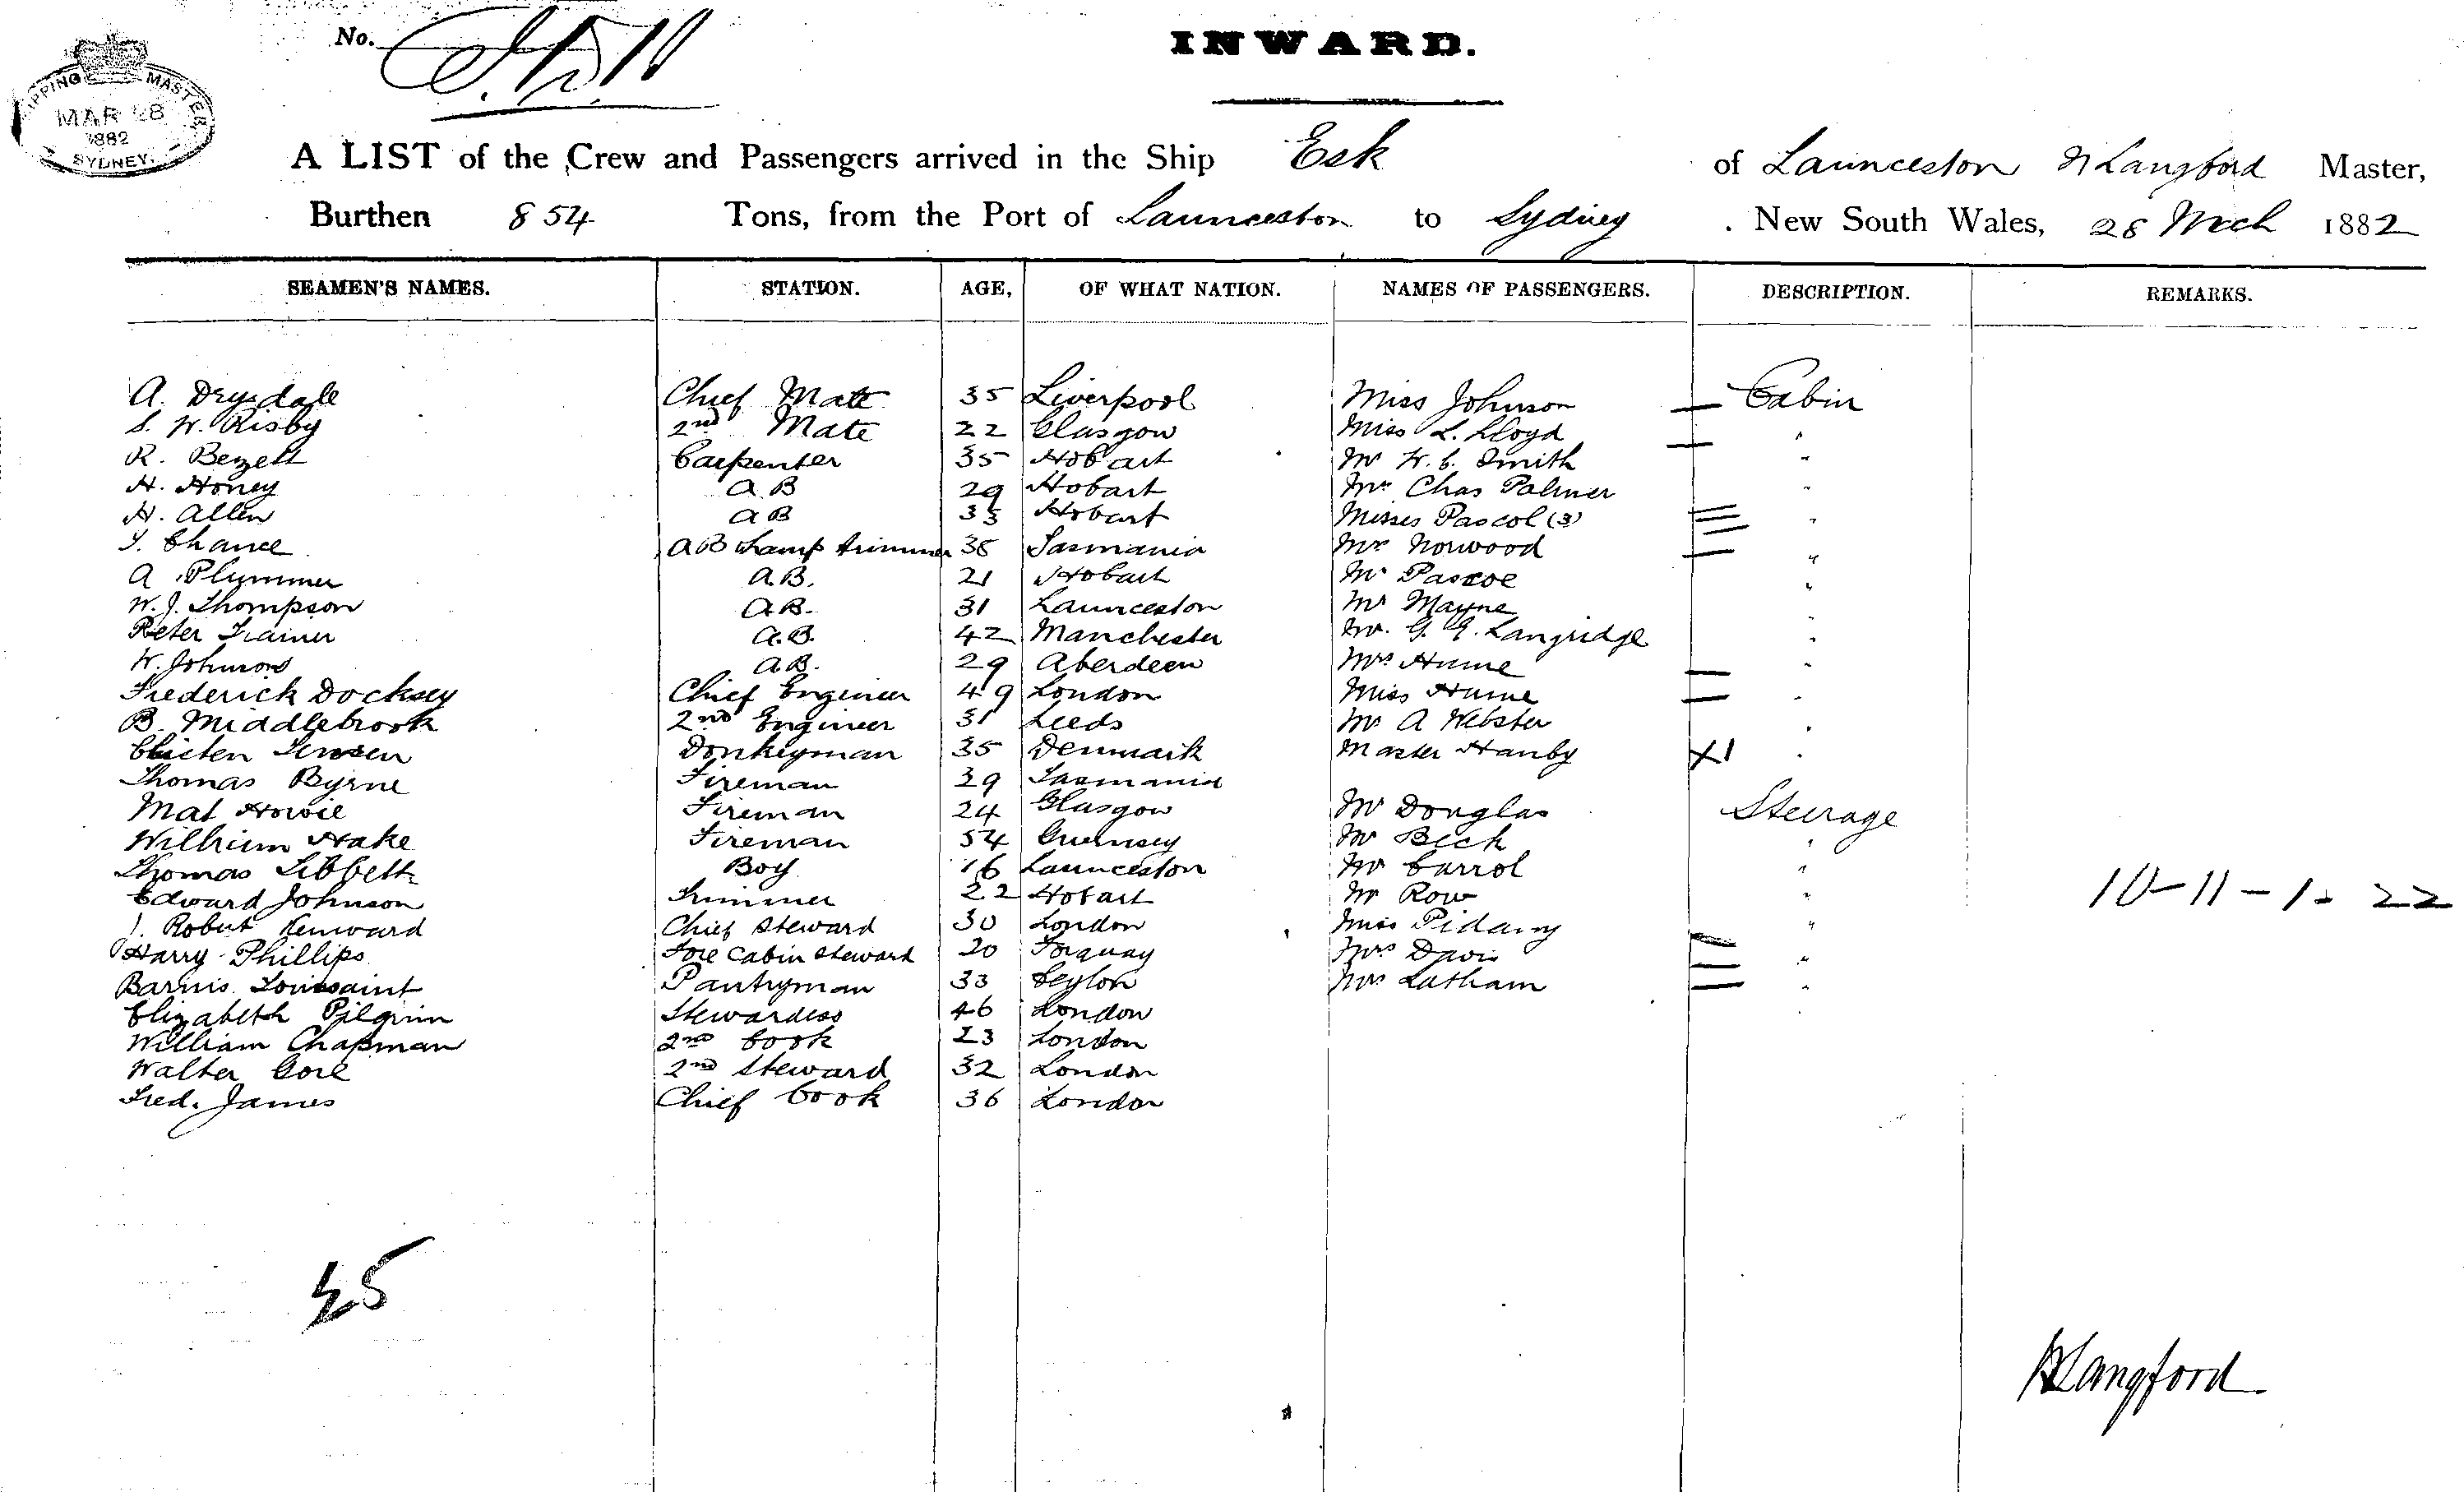 No.
INWARD.
SHIPPING MASTER
MAR 28
1882
SYDNEY.
A LIST of the Crew and Passengers arrived in the Ship Esk of Launceston Langford Master,
Burthen 854 Tons, from the Port of Launceston to Sydney . New South Wales, 28 Mrch 1882
SEAMEN'S NAMES. STATION. AGE, OF WHAT NATION. NAMES OF PASSENGERS. DESCRIPTION. REMARKS.
A. Drysdale Chief Mate 35 Liverpool Miss Johnson Cabin
S. W. Risby 2nd Mate 22 Glasgow Miss L. Lloyd "
R. Bezett Carpenter 35 Hobart Mr W. C. Smith "
H. Honey AB 29 Hobart Mr Chas Palmer "
H. Allen AB 33 Hobart Misses Pascol (3) "
J. Chance AB & Lamp trimmer 38 Tasmania Mr Norwood "
A Plummer A.B. 21 Hobart Mr Pascoe "
W. J. Thompson A.B. 31 Launceston Mr Mayne "
Peter Trainer A.B. 42 Manchester Mr. G. G. Langridge "
W. Johnson A.B. 29 Aberdeen Mrs Hume "
Frederick Docksey Chief Engineer 49 London Miss Hume "
B. Middlebrook 2nd Engineer 31 Leeds Mr A Webster "
Jensen Donkeyman 35 Denmark Master Hanby X1 "
Thomas Byrne Fireman 29 Tasmania
Mat Howie Fireman 24 Glasgow Mr Douglas Steerage
William Hake Fireman 54 Guernsey Mr Beck "
Thomas Tibbett Boy 16 Launceston Mr Carrol "
Edward Johnson Trimmer 22 Hobart Mr Row " 10-11-1. 22
J. Robert Kenward Chief Steward 30 London Miss "
Harry Phillips Fore Cabin Steward 20 Torquay Mrs Davis "
Barnis Toussaint Pantryman 33 Ceylon Mrs Latham "
Elizabeth Pilgrim Stewardess 46 London
William Chapman 2nd Cook 23 London
Walter Gore 2nd Steward 32 London
Fred. James Chief Cook 36 London
25
Langford